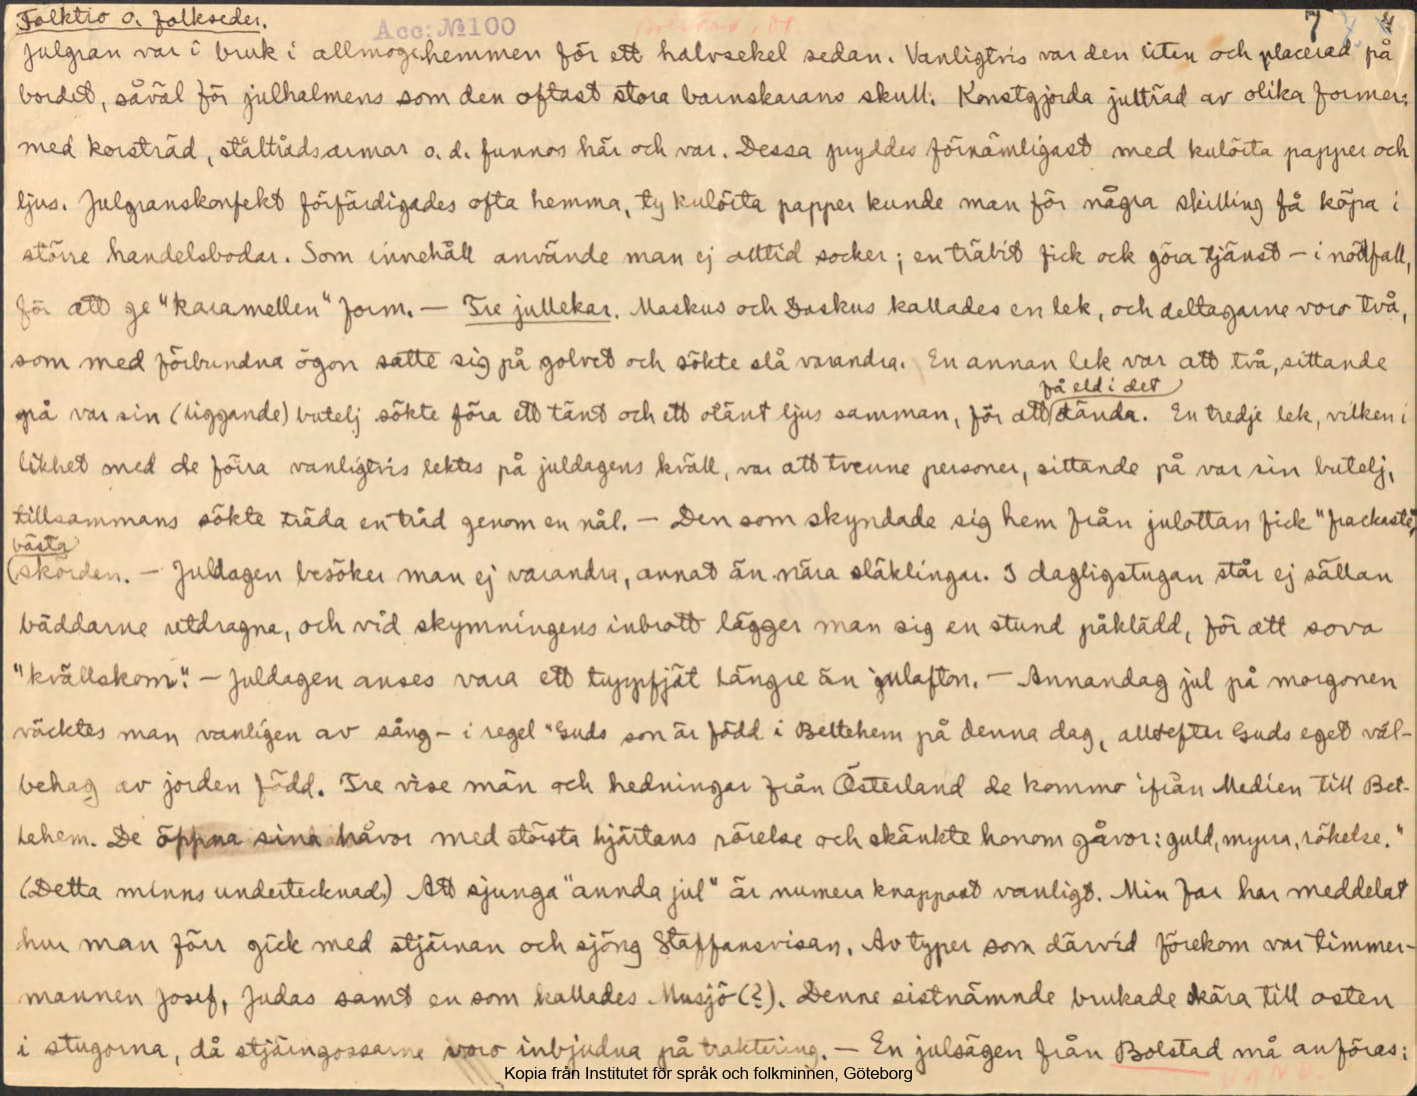 Folktro o. folkseder.
Acc: № 100
Bolstad, Dl
7
Julgran var i bruk i allmogehemmen för ett halvsekel sedan. Vanligtvis var den liten och placerad på
bordet, såväl för julhalmens som den oftast stora barnskarans skull. Konstgjorda julträd av olika former:
med korsträd, ståltrådsarmar o. d. funnos här och var. Dessa pryddes förnämligast med kulörta papper och
ljus. Julgranskonfekt förfärdigades ofta hemma, ty kulörta papper kunde man för några skilling få köpa i
större handelsbodar. Som innehåll använde man ej alltid socker; en träbit fick ock göra tjänst – i nödfall,
för att ge "karamellen" form. — Tre jullekar. Maskus och Daskus kallades en lek, och deltagarne voro två,
som med förbundna ögon satte sig på golvet och sökte slå varandra. En annan lek var att två, sittande
få eld i det
på var sin (liggande) butelj sökte föra ett tänt och ett otänt ljus samman, för att tända. En tredje lek, vilken i
likhet med de förra vanligtvis lektes på juldagens kväll, var att tvenne personer, sittande på var sin butelj,
tillsammans sökte träda en tråd genom en nål. — Den som skyndade sig hem från julottan fick "frackaste",
bästa
skörden. — Juldagen besöker man ej varandra, annat än nära släktingar. I dagligstugan står ej sällan
bäddarne utdragna, och vid skymningens inbrott lägger man sig en stund påklädd, för att sova
"kvällskom". — Juldagen anses vara ett tuppfjät längre än julafton. — Annandag jul på morgonen
väcktes man vanligen av sång – i regel "Guds son är född i Bettehem på denna dag, alltefter Guds eget väl-
behag av jorden född. Tre vise män och hedningar från Österland de kommo ifrån Medien till Bet-
lehem. De öppna sina håvor med största hjärtans rörelse och skänkte honom gåvor: guld, myrra, rökelse."
(Detta minns undertecknad.) Att sjunga "annda jul" är numera knappast vanligt. Min far har meddelat
hur man förr gick med stjärnan och sjöng Staffansvisan. Av typer som därvid förekom var timmer-
mannen Josef, Judas samt en som kallades Musjö (?). Denne sistnämnde brukade skära till osten
i stugorna, då stjärngossarne voro inbjudna på traktering. — En julsägen från Bolstad må anföras:
Kopia från Institutet för språk och folkminnen, Göteborg